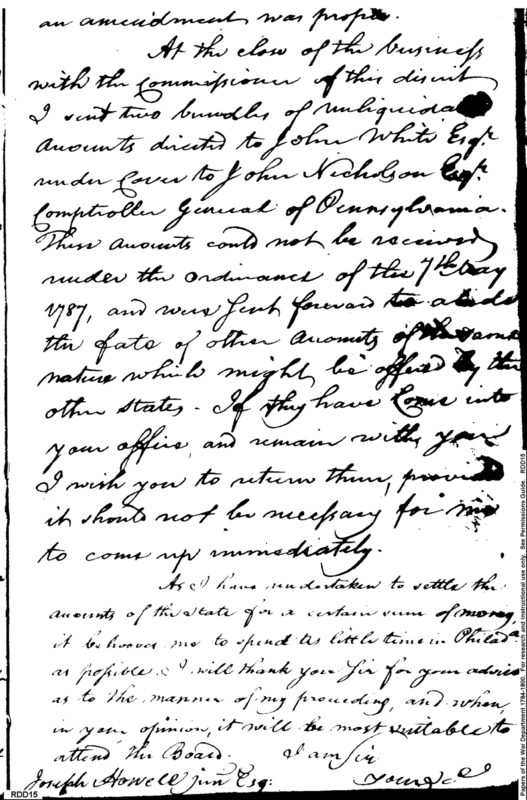 an amendment was proper.
At the close of the business
with the Commissioner of this district
I sent two bundles of unliquidated
Accounts directed to John White Esqr.
under Cover to John Nicholson Esqr.
Comptroller General of Pennsylvania.
These Accounts could not be received
under the Ordinance of the 7th May
1787, and were sent forward to abide
the fate of other Accounts of the same
nature which might be offered by the
other States. If they have come into
your office, and remain with you
I wish you to return them, provided
it should not be necessary for me
to come up immediately.
As I have undertaken to settle the
accounts of the State for a certain sum of money,
it behooves me to spend as little time in Philada.
as possible. I will thank you Sir for your advice
as to the manner of my proceeding, and when,
in your opinion, it will be most suitable to
attend the Board. I am Sir
Joseph Howell junr. Esq: Yours &ca
RDD15
Papers of the War Department 1784-1800. For research and instructional use only. See Permissions Guide. RDD15